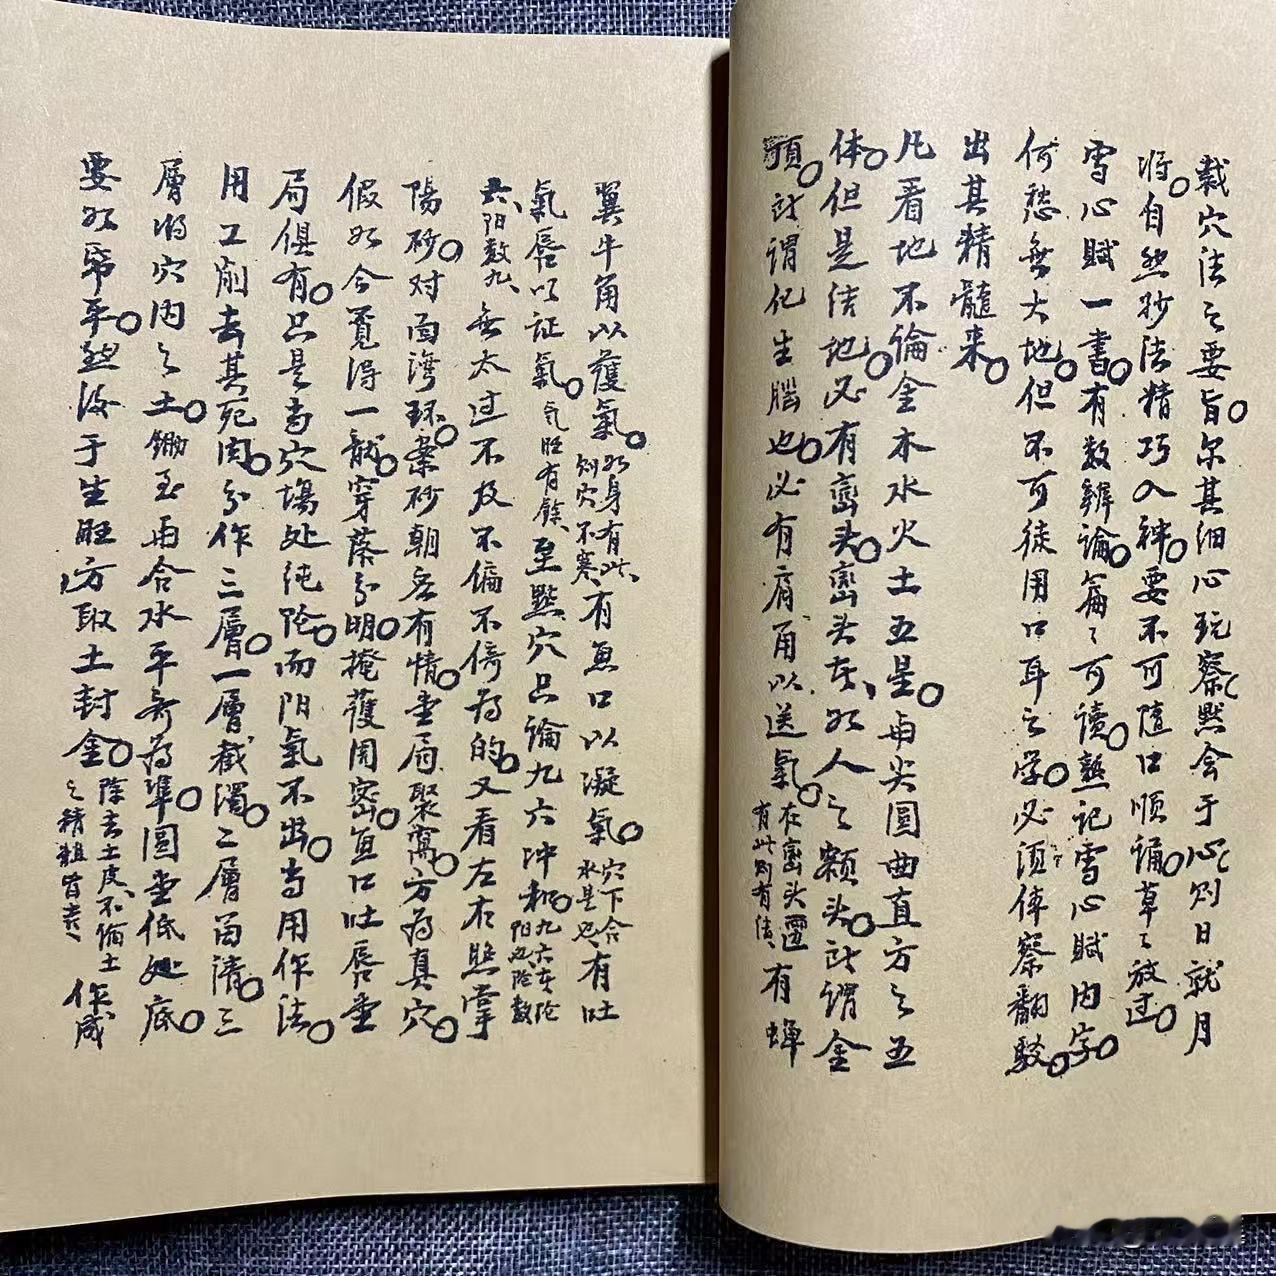 裁穴法之要旨尔其细心玩察默会于心则日就月
将自然抄法精巧入神要不可随口顺诵草々放过
雪心賦一書有数辨論篇々可讀熟记雪心賦内字
何愁無大地但不可徒用口耳之学必须体察翻駁
出其精髓来
凡看地不論金木水火土五星与尖圆曲直方之五
体但是结地必有峦头峦头者如人之额头所谓金
頂所謂化生腦也必有肩角以送氣在峦头邊有此则有结有蝉
翼牛角以蔭氣如身有此则穴不寒有鱼口以凝氣穴下合水是也有吐
氣唇以证氣气旺有餘至點穴只論九六冲和九六者阴阳也阴数
六阳数九無太过不及不偏不倚為的又看左右照掌
陽砂对面湾环案砂朝各有情堂局聚窝方為真穴
假如今覓得一龍穿落分明掩護周密鱼口吐唇堂
局俱有只是当穴塲处纯阴而阳氣不出当用作法
用工削去其死肉分作三層一層截濁二層留清三
層将穴内之土鋤至与合水平齐為準圆堂低处底
要如帚平然後于生旺方取土封金除去土皮不論土之精粗皆素作成